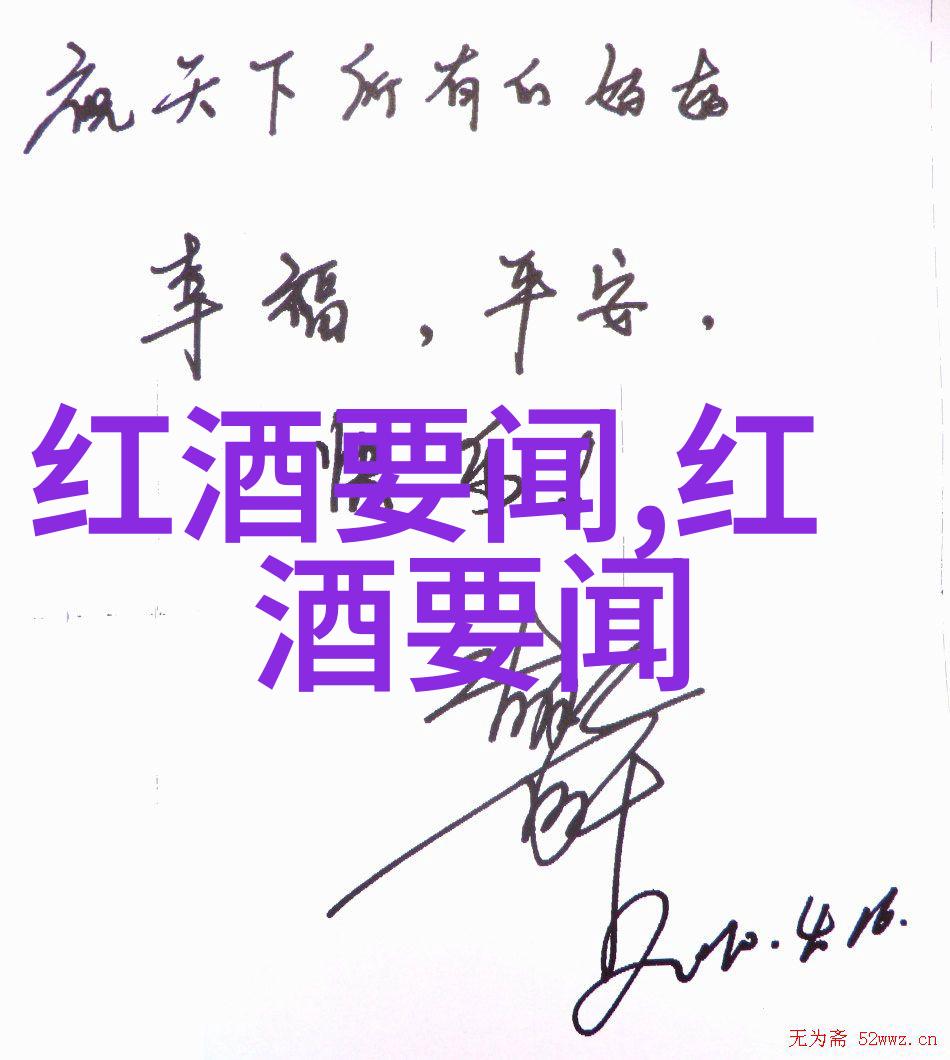 祝天下所有的妈妈
幸福，平安，
快乐！
红酒要闻,红
酒要闻
2010.4.16.
无为斋 52wwz.cn